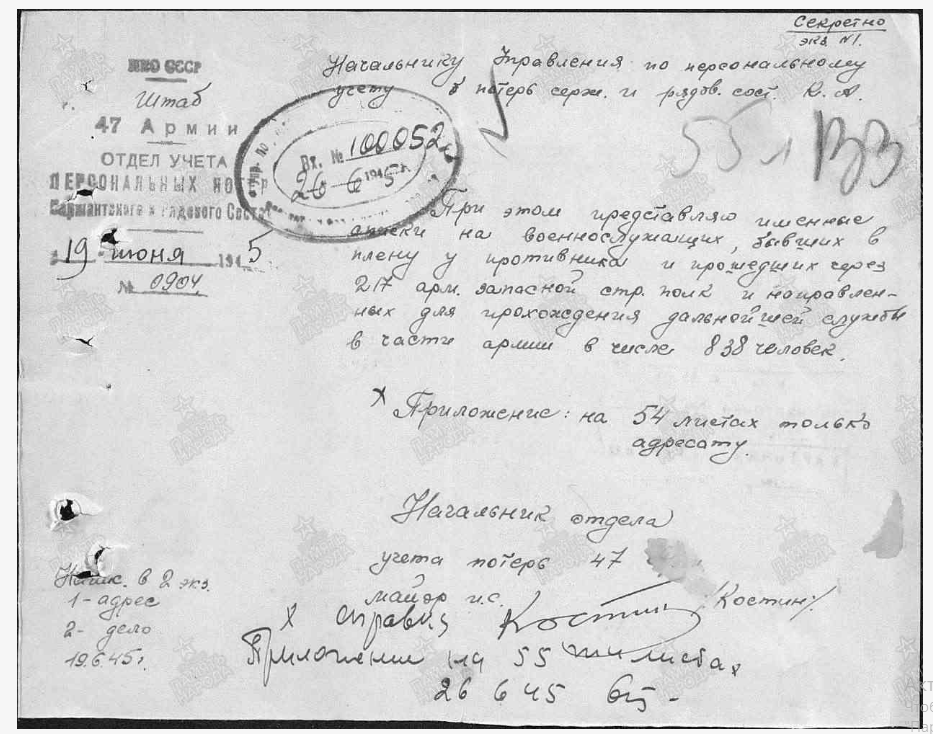 Секретно
экз. №1.
НКО СССР
Штаб
47 Армии
ОТДЕЛ УЧЕТА
ПЕРСОНАЛЬНЫХ ПОТЕРЬ
Сержантского и Рядового Состава
19 июня 1945
№ 0904
Начальнику Управления по персональному
учету потерь серж. и рядов. сост. К. А.
Вх. № 100052
26 6 1945 г.
55 л
При этом представляю именные
списки на военнослужащих, бывших в
плену у противника и прошедших через
217 арм. запасной стр. полк и направлен-
ных для прохождения дальнейшей службы
в части армии в числе 838 человек.
х Приложение: на 54 листах только
адресату.
Начальник отдела
учета потерь 47
майор и.с. Костин /Костин/
Напис. в 2 экз.
1- адрес
2- дело
19.6.45 г.
х справка
Приложение на 55 ти листах
26 6 45